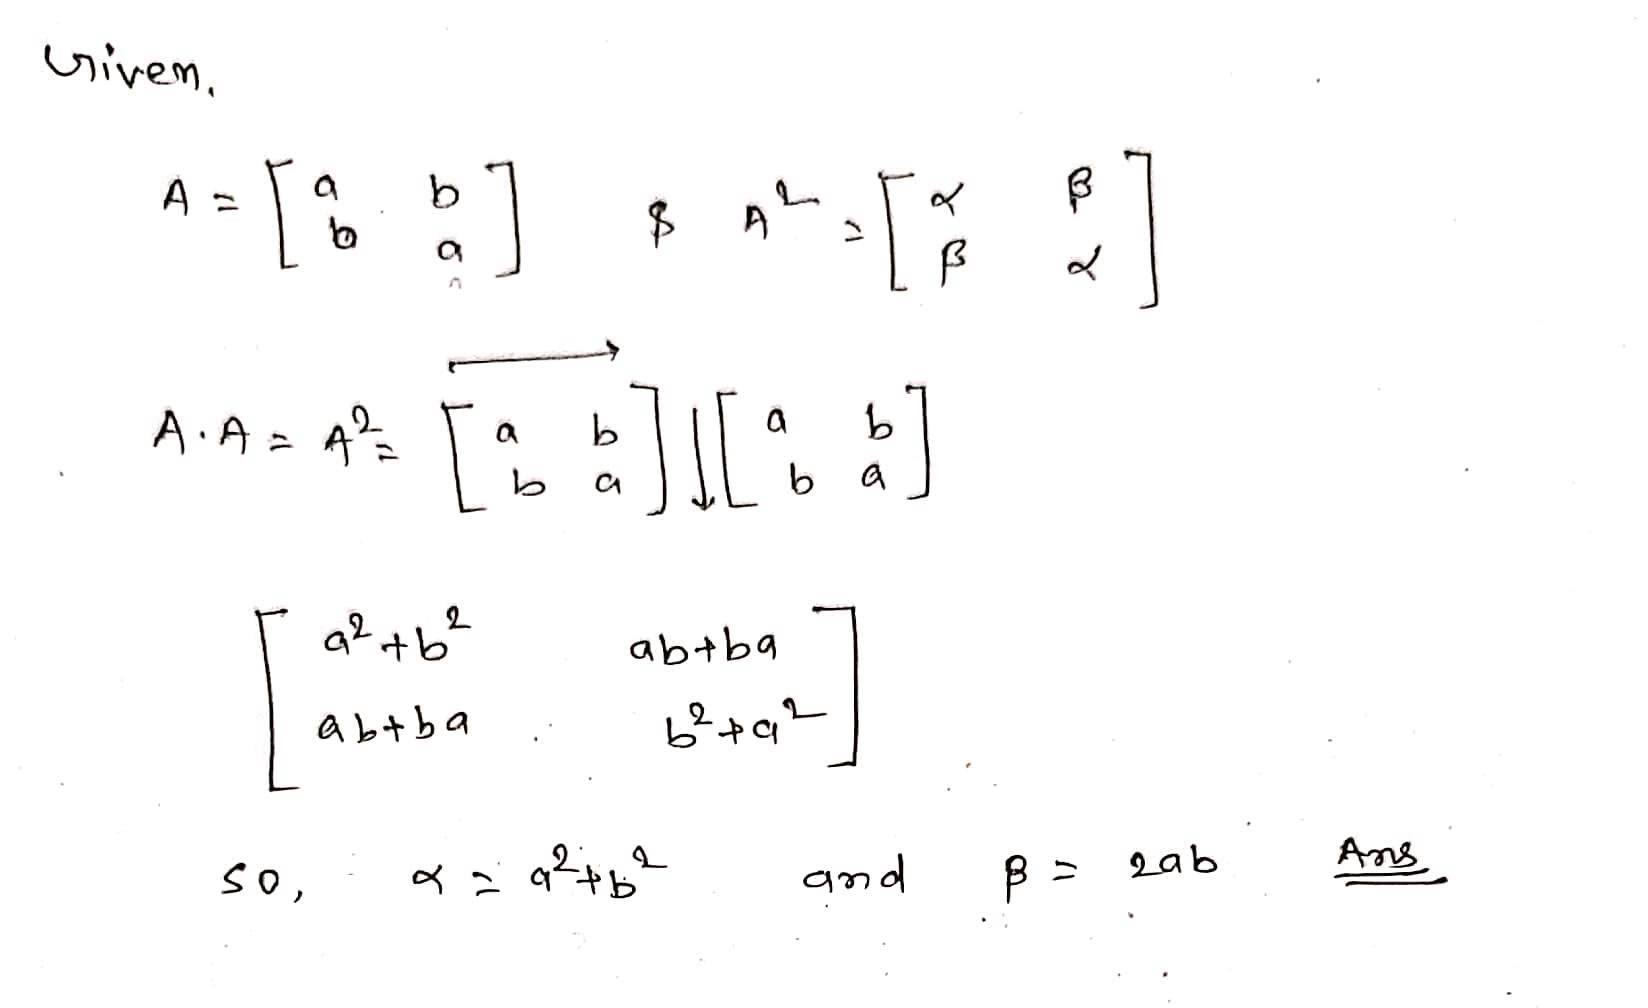 Given,
A = [ a b ; b a ] & A² = [ α β ; β α ]
A.A = A² = [ a b ; b a ] [ a b ; b a ]
[ a²+b² ab+ba ; ab+ba b²+a² ]
so, α = a²+b² and β = 2ab Ans